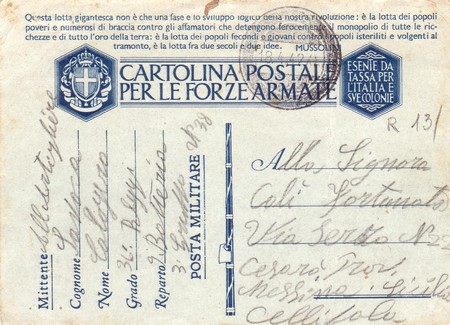 Questa lotta gigantesca non è che una fase e lo sviluppo logico della nostra rivoluzione: è la lotta dei popoli
poveri e numerosi di braccia contro gli affamatori che detengono ferocemente il monopolio di tutte le ric-
chezze e di tutto l'oro della terra: è la lotta dei popoli fecondi e giovani contro i popoli isteriliti e volgenti al
tramonto, è la lotta fra due secoli e due idee.
MUSSOLINI
18.4.42
CARTOLINA POSTALE
PER LE FORZE ARMATE
ESENTE DA
TASSA PER
L'ITALIA E
SUE COLONIE
R 131
Mittente
Cognome
Nome Calogero
Grado 36°
Reparto 9 Batteria
3°
POSTA MILITARE N° 38
Alla Signora
Colì Fortunato
Via N 22
Cesarò
Messina Sicilia